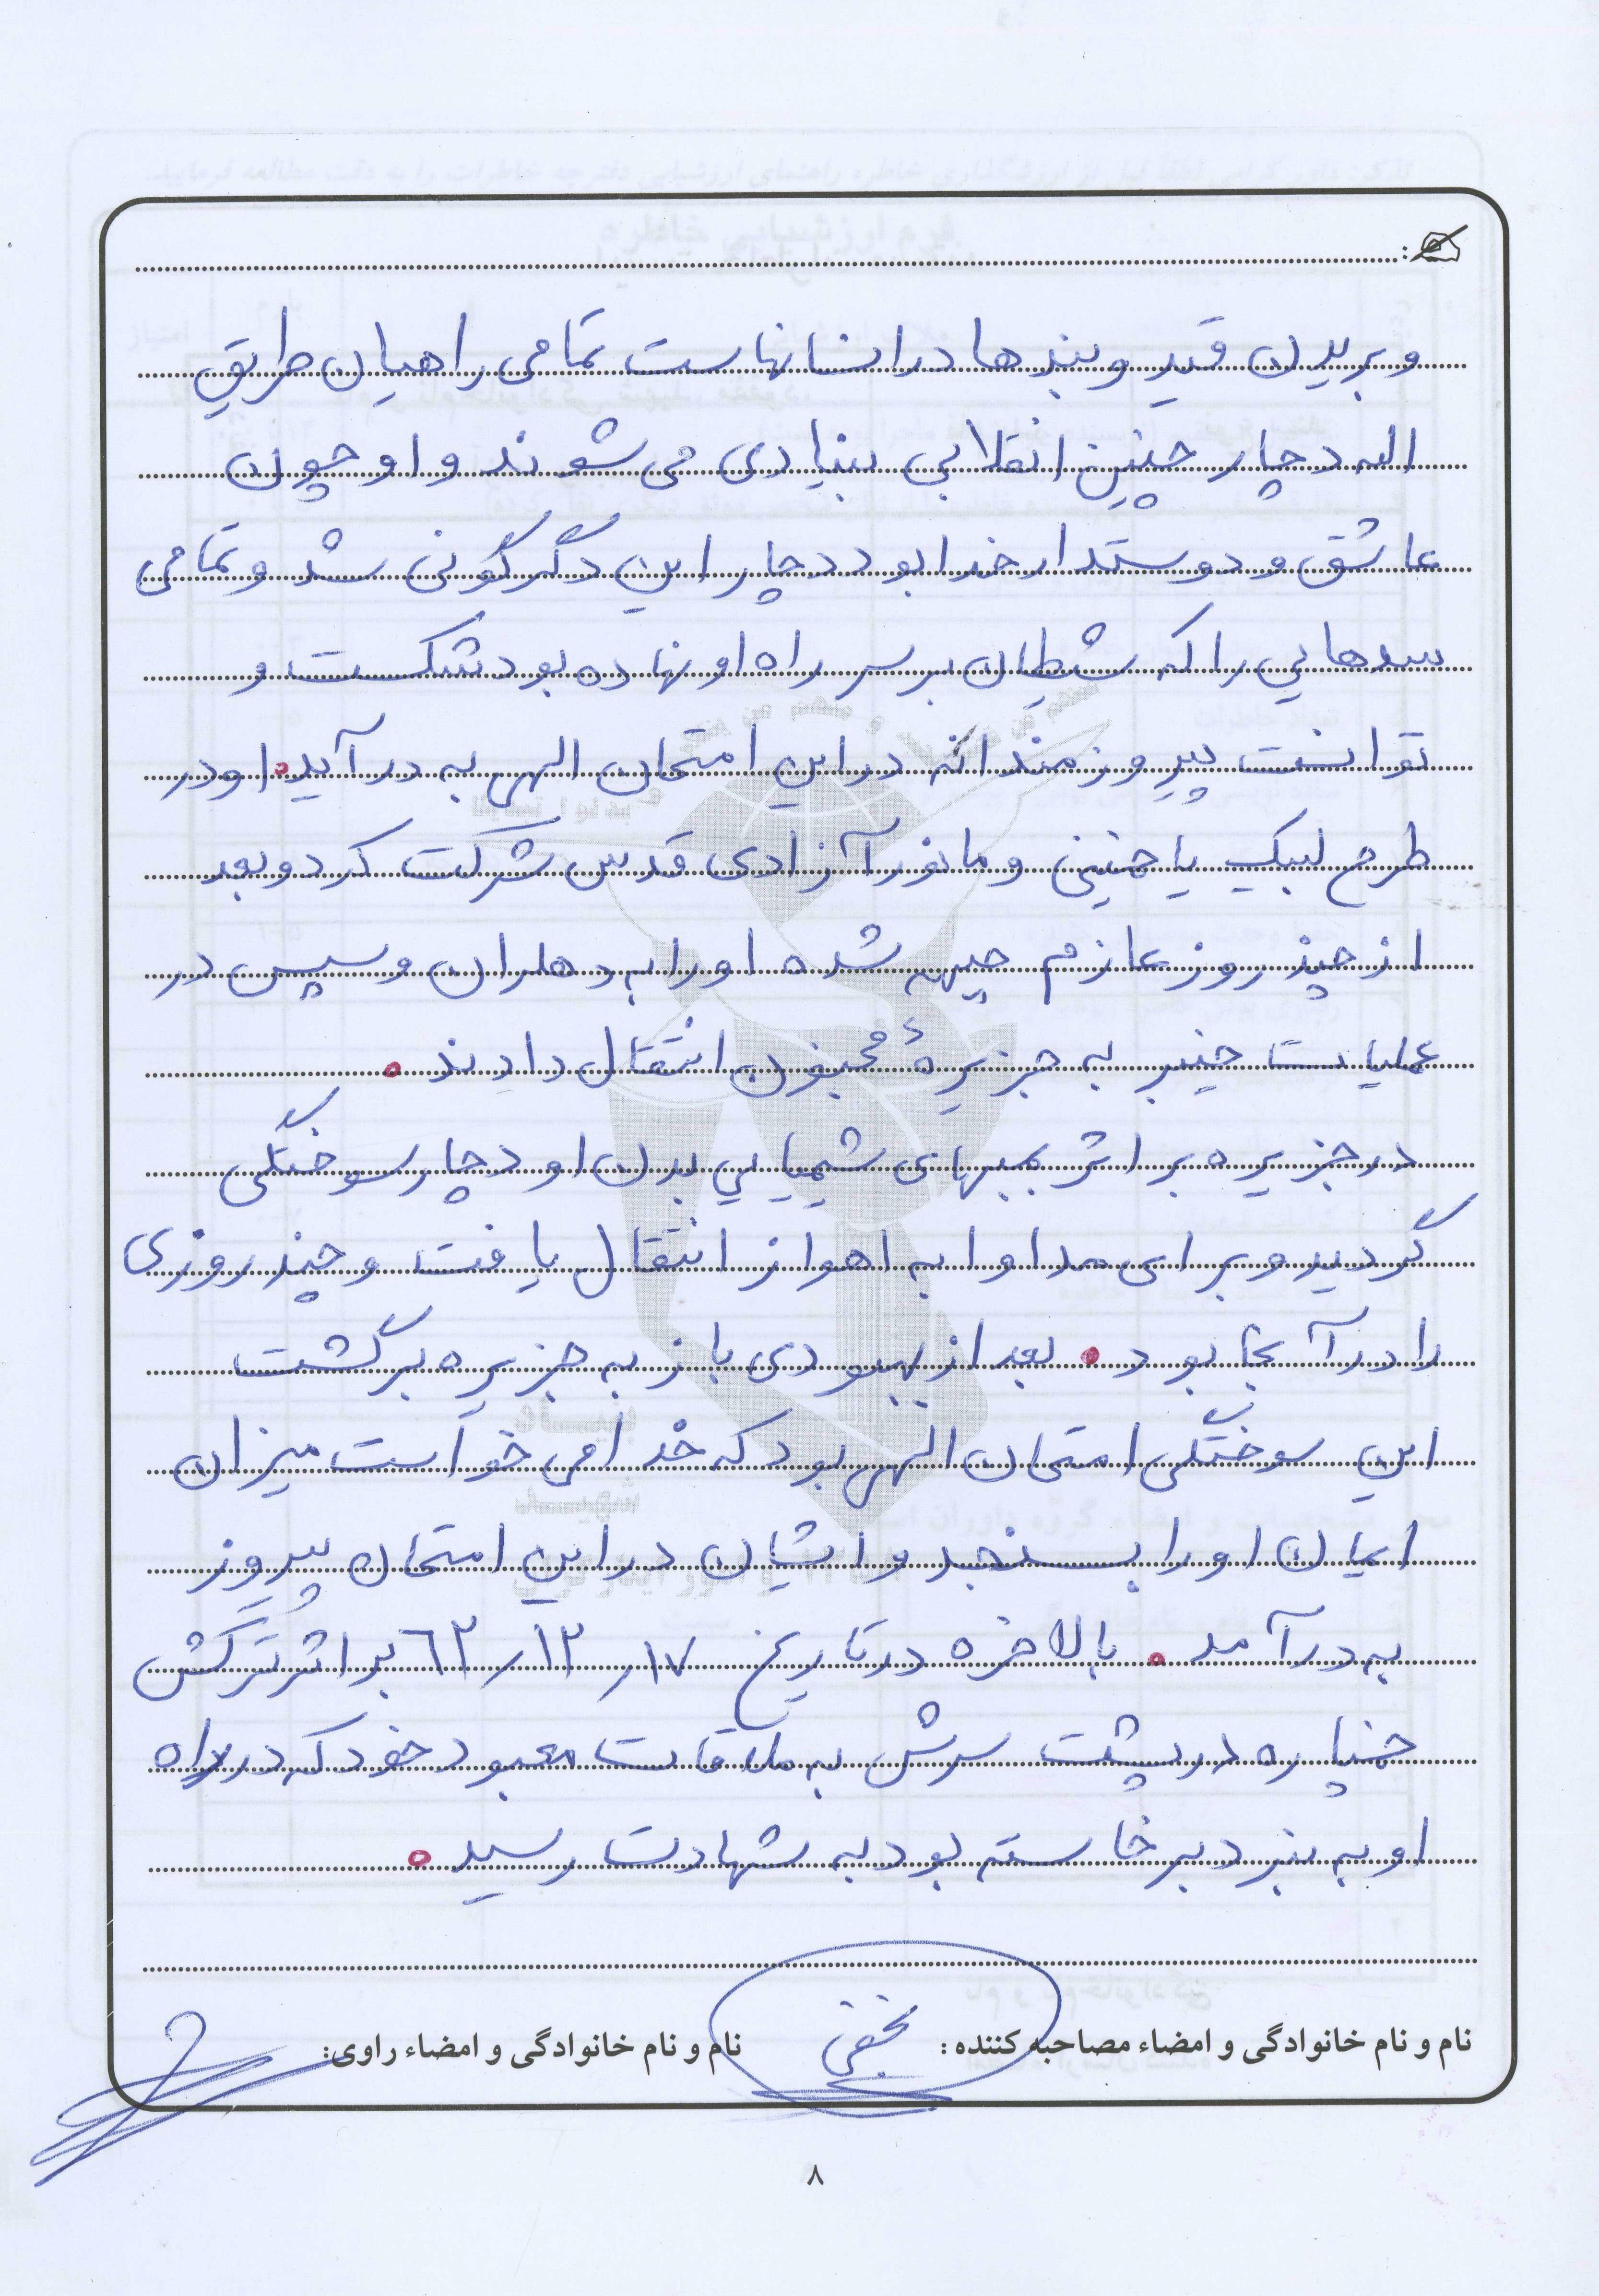 و بریدن قید و بندها در انسانهاست تمامی راهیان طریق
اله دچار چنین انقلابی بنیادی می شوند و او چون
عاشق و دوستدار خدا بود دچار این دگرگونی شد و تمامی
سدهایی را که شیطان بر سر راه او نهاده بود شکست و
توانست پیروزمندانه در این امتحان الهی به در آید. او در
طرح لبیک یا خمینی و مانور آزادی قدس شرکت کرد و بعد
از چند روز عازم جبهه شده او را به دهلران و سپس در
عملیات خیبر به جزیرهٔ مجنون انتقال دادند.
در جزیره بر اثر بمبهای شیمیایی بدن او دچار سوختگی
گردید و برای مداوا به اهواز انتقال یافت و چند روزی
را در آنجا بود. بعد از بهبودی باز به جزیره برگشت
این سوختگی امتحان الهی بود که خدا می خواست میزان
ایمان او را بسنجد و ایشان در این امتحان پیروز
به در آمد. بالاخره در تاریخ ۶۲/۱۲/۱۷ بر اثر ترکش
خمپاره در پشت سرش به ملاقات معبود خود که در راه
او به نبرد برخاسته بود به شهادت رسید.
نام و نام خانوادگی و امضاء مصاحبه کننده: نجفی نام و نام خانوادگی و امضاء راوی:
۸